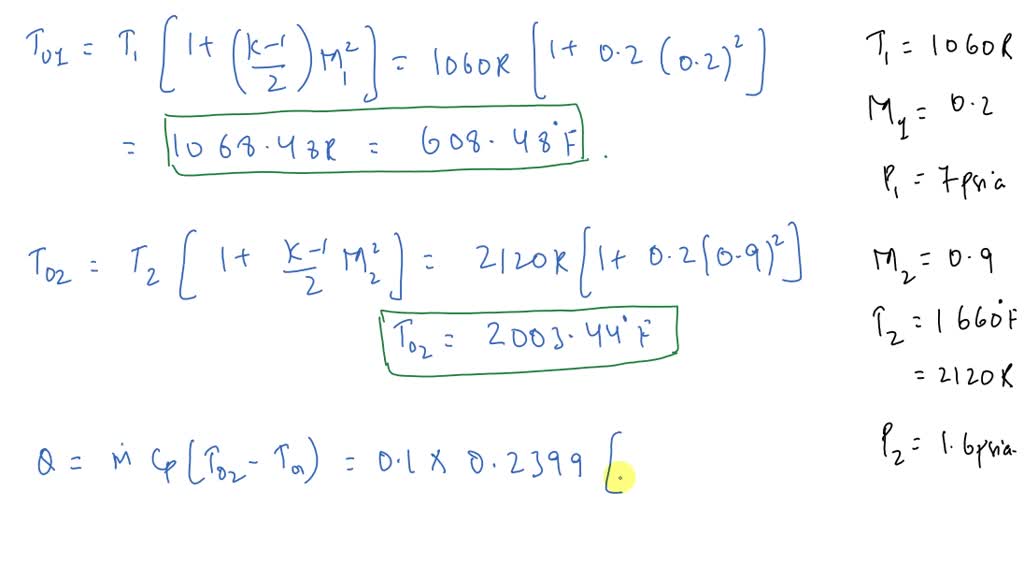 T₀₁ = T₁ [1 + (k-1/2) M₁²] = 1060R [1 + 0.2 (0.2)²]
= 1068.48R = 608.48°F.
T₀₂ = T₂ [1 + k-1/2 M₂²] = 2120R [1 + 0.2(0.9)²]
T₀₂ = 2003.44°F
Q = ṁ Cp (T₀₂ - T₀₁) = 0.1 × 0.2399 [.
T₁ = 1060R
M₁ = 0.2
P₁ = 7psia
M₂ = 0.9
T₂ = 1660°F
= 2120R
P₂ = 1.6psia